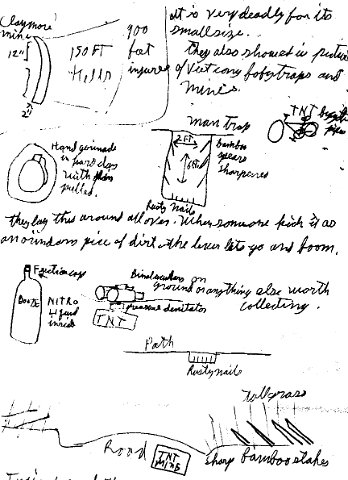 Claymore
mine
12"
2"
150 FT
Kills
900
feet
injures
it is very deadly for its
small size.
they also showed us pictures
of Viet cong bobytraps and
mines.
TNT
man trap
2 FT
6 FT
bamboo
spears
sharpened
Rusty nails
Hand grenade
in hard clay
with pin
pulled.
they lay this around all over. When someone picks it
an ordinary pice of dirt the lever lets go and boom.
Friction cap
BOOZE
NITRO
Binoculars on
ground or anything else worth
collecting.
pressure denitator
TNT
Path
Rusty nails
Tall grass
Road
TNT
sharp bamboo stakes